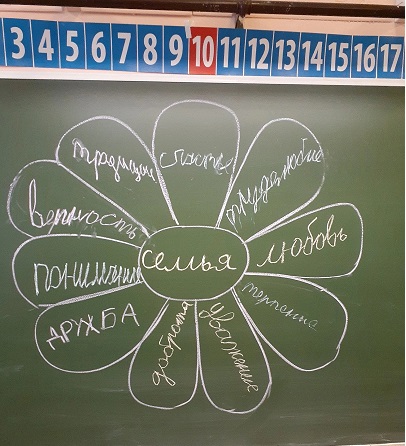 3 4 5 6 7 8 9 10 11 12 13 14 15 16 17
традиции
счастье
трудолюбие
верность
любовь
семья
понимание
терпение
ДРУЖБА
доброта
уважение